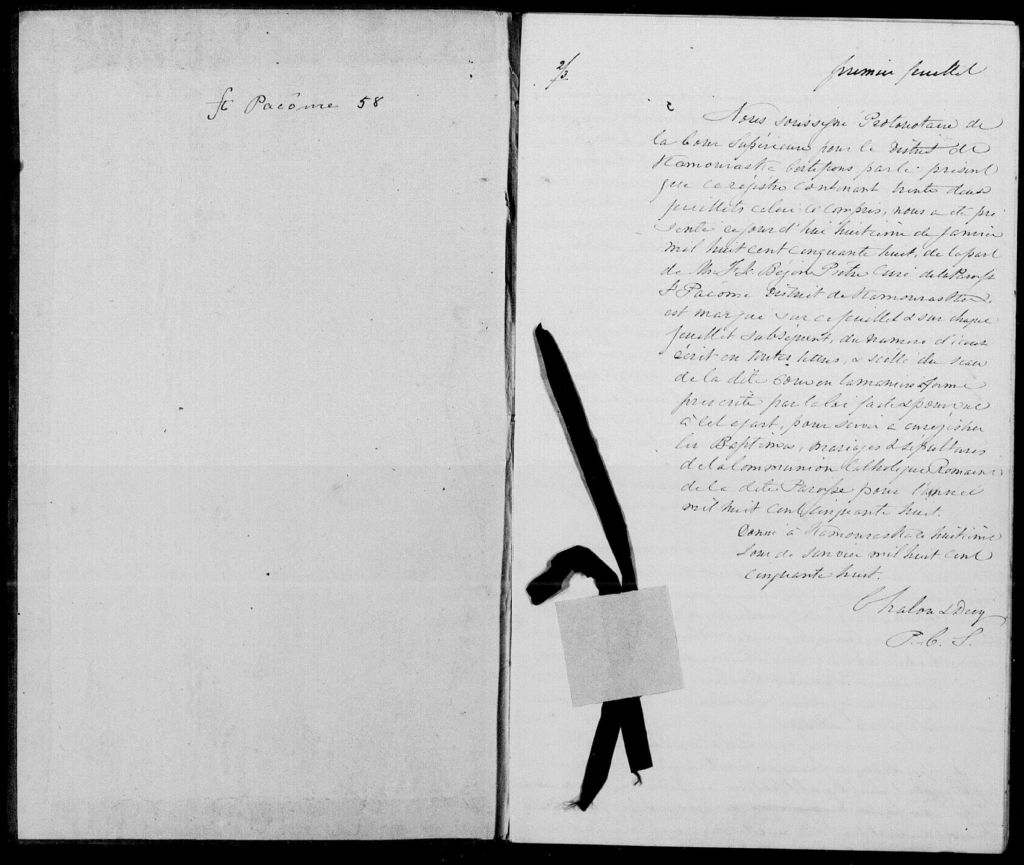 St Pacôme 58
2/3.
premier feuillet
Nous soussigné Protonotaire de
la Cour Supérieure pour le District de
Kamouraska Certifions par le présent
que ce régistre Contenant trente deux
feuillets celui ci compris, nous a été pré
senté ce jour d'hui huitième de Janvier
mil huit cent cinquante huit, de la part
de Mr Bégin Prêtre Curé de la Paroisse
St Pacôme District de Kamouraska,
est marqué sur ce feuillet & sur chaque
feuillet subséquent, du numéro d'iceux
écrit en toutes lettres, & scellé du sceau
de la dite Cour en la manière & forme
prescrite par la loi faite & pourvue
à cet égard, pour servir à enregistrer
les Baptêmes, mariages & sépultures
de la Communion Catholique Romaine
de la dite Paroisse pour l'année
mil huit cent cinquante huit.
Donné à Kamouraska ce huitième
Jour de Janvier mil huit cent
cinquante huit.
P. C. S.